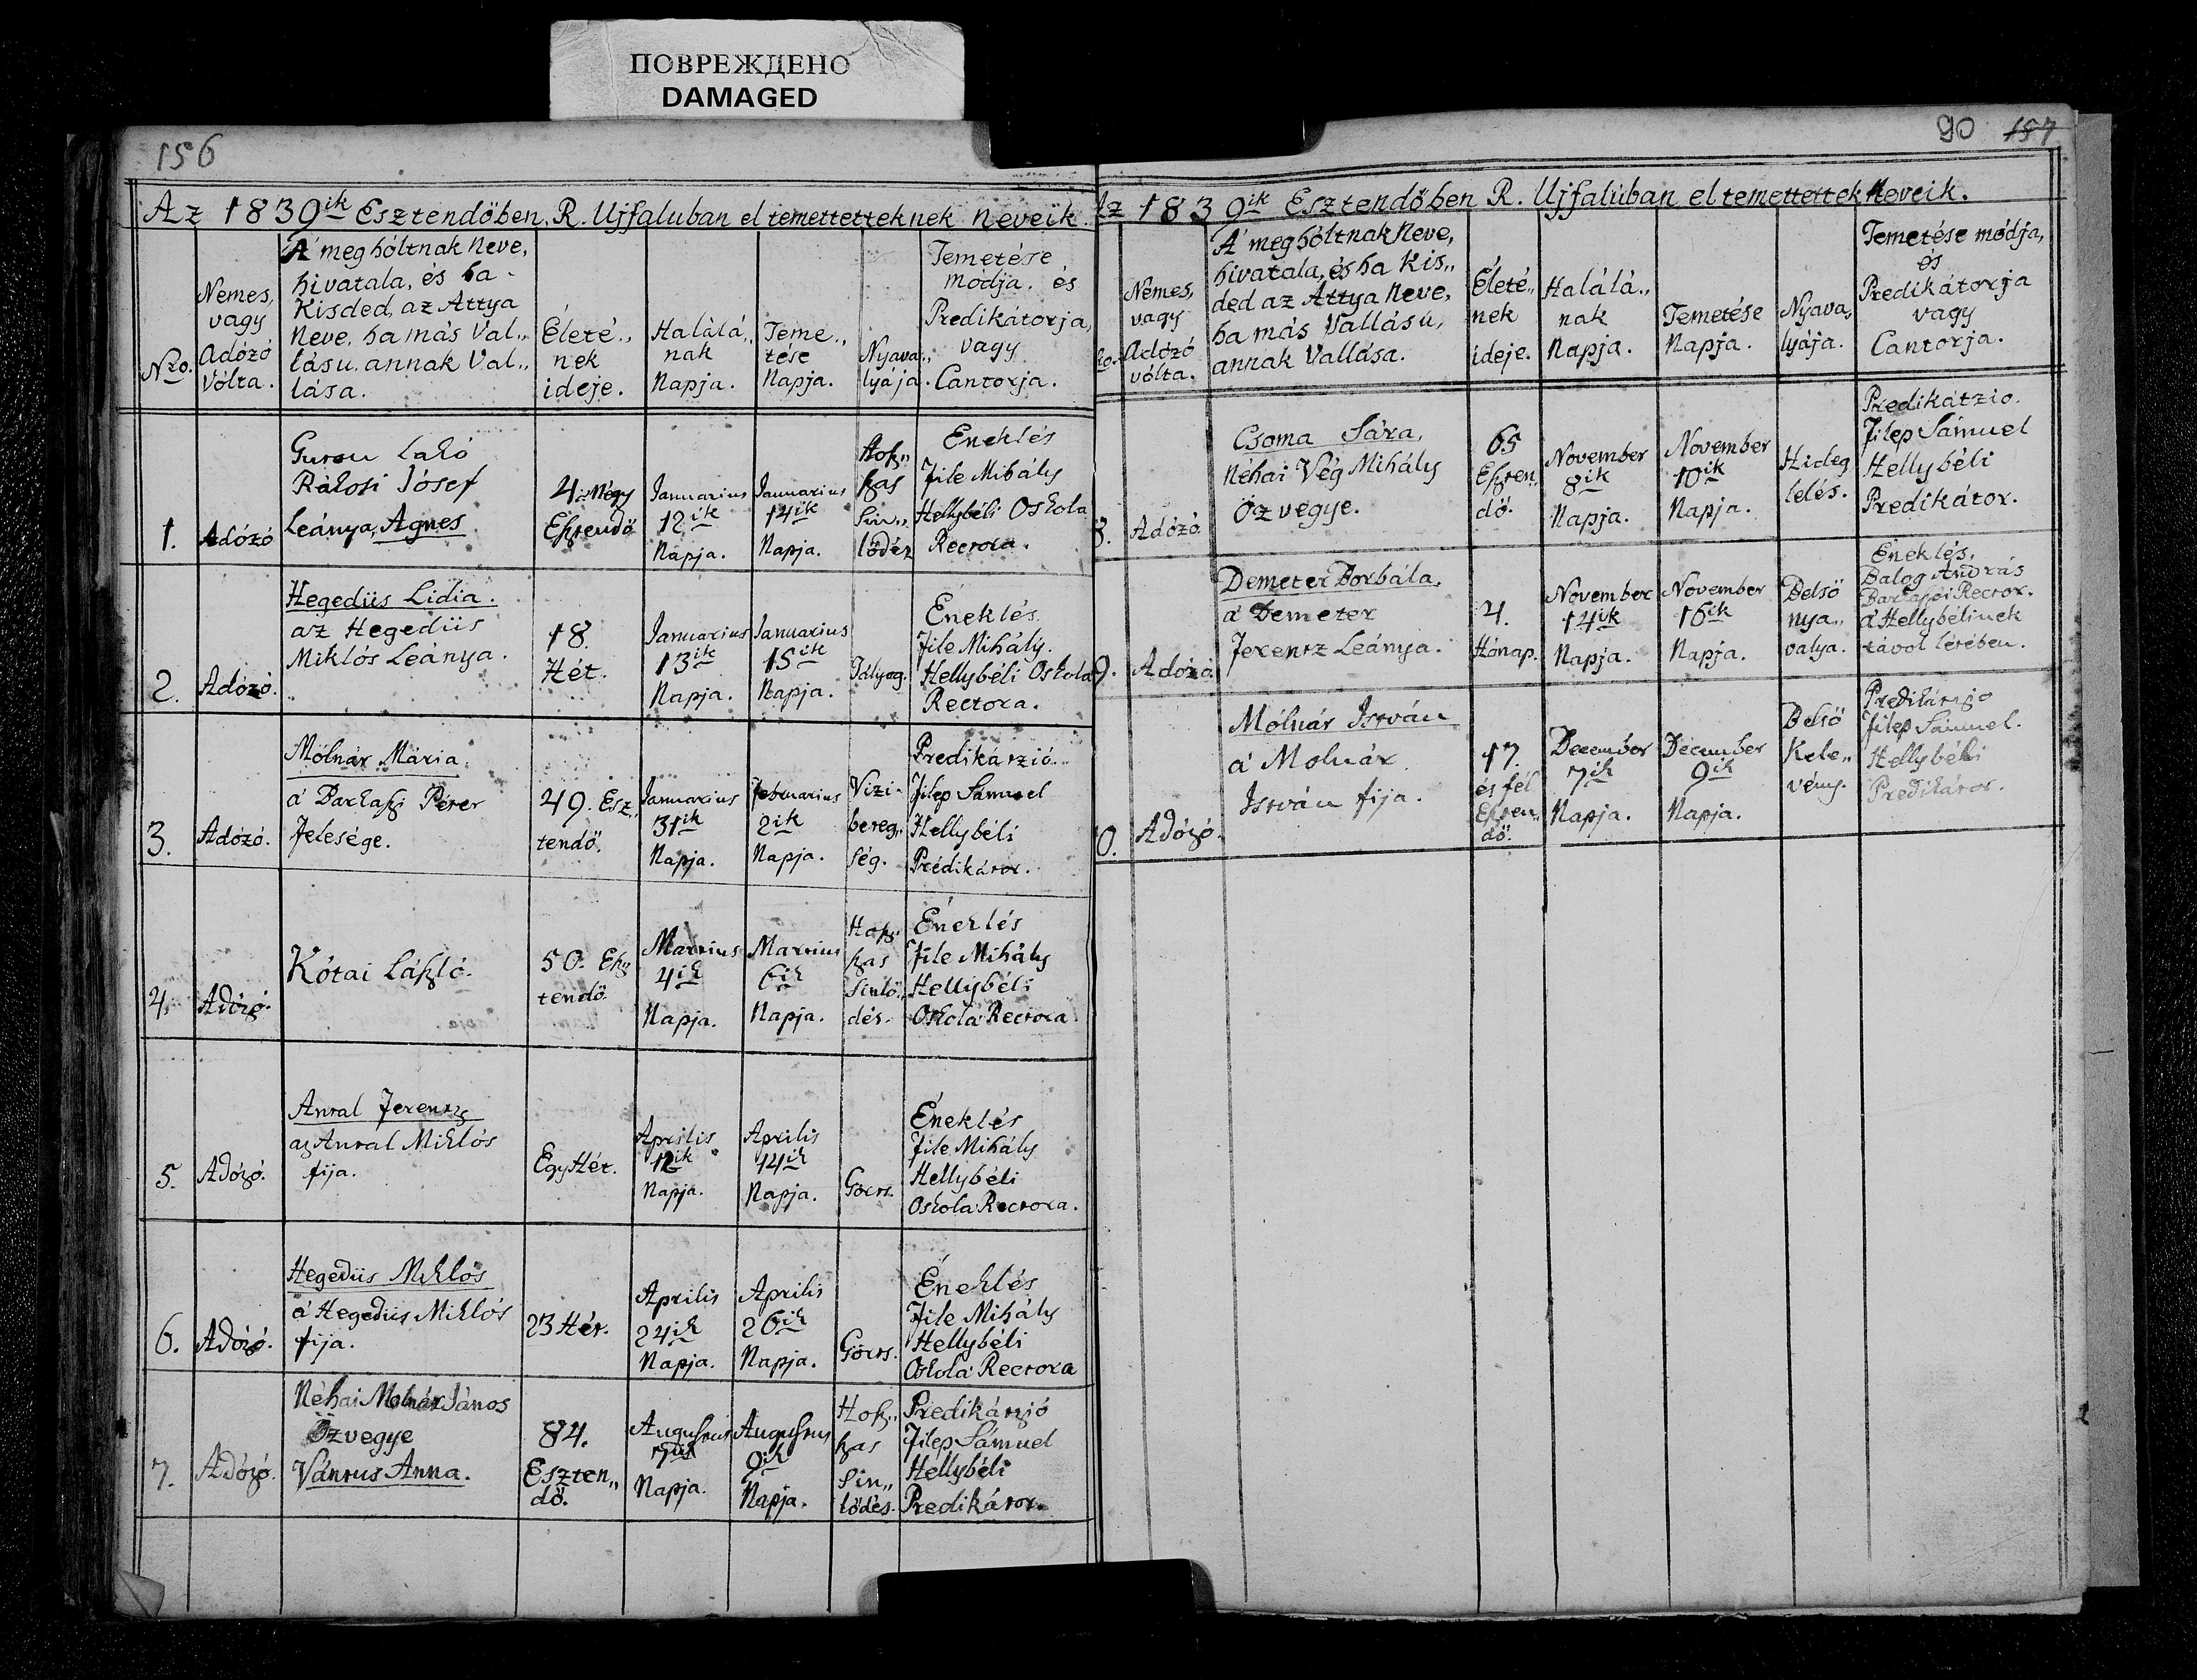 ПОВРЕЖДЕНО
DAMAGED
156
Az 1839ik Esztendőben R. Ujfaluban el temettetteknek neveik.
Nro.
Nemes,
vagy
Adózó
vólta.
A' meg hóltnak Neve,
hivatala, és ha
Kisded, az Attya
Neve, ha más Val„
lásu, annak Val„
lása.
Életé„
nek
ideje.
Halálá„
nak
Napja.
Teme„
tése
Napja.
Nyava„
lyája.
Temetése
módja, és
Predikátorja,
vagy
Cantorja.
1.
Adózó
Lakó
Rákosi Jósef
Leánya, Agnes
4. Négy
Esztendő
Januarius
12ik
Napja.
Januarius
14ik
Napja.
Hosz„
szas
Sin„
lődés
Eneklés
File Mihály
Hellybéli Oskola
Rectora.
2.
Adózó.
Hegedüs Lidia.
az Hegedüs
Miklós Leánya.
18.
Hét.
Januarius
13ik
Napja.
Januarius
15ik
Napja.
Éneklés.
File Mihály.
Hellybéli Oskola
Rectora.
3.
Adózó.
Mólnár Mária.
á Barkaszi Péter
Felesége.
49. Esz„
tendő.
Januarius
31ik
Napja.
Februarius
2ik
Napja.
Vizi-
bereg„
ség.
Predikátzió.
Filep Sámuel
Hellybéli
Prédikátor.
4.
Adózó.
Kótai László.
50. Esz„
tendő.
Martius
4ik
Napja.
Martius
6ik
Napja.
Hosz„
szas
Sinlő„
dés.
Éneklés
File Mihály
Hellybéli
Oskola Rectora
5.
Adózó.
Antal Ferentz
az Antal Miklós
fija.
Egy Hét.
Aprilis
12ik
Napja.
Aprilis
14ik
Napja.
Görts.
Éneklés
File Mihály
Hellybéli
Oskola Rectora.
6.
Adózó.
Hegedüs Miklós
á Hegedüs Miklós
fija.
23 Hét.
Aprilis
24ik
Napja.
Aprilis
26ik
Napja.
Görts.
Éneklés
File Mihály
Hellybéli
Oskola Rectora
7.
Adózó.
Néhai Molnár János
Özvegye
Vántus Anna.
84.
Eszten„
dő.
Augustus
7ik
Napja.
Augustus
9ik
Napja.
Hosz„
szas
Sin„
lődés.
Predikátzió
Filep Sámuel
Hellybéli
Predikátor.
90 157
Az 1839ik Esztendőben R. Ujfaluban el temettettek Neveik.
ro.
Némes,
vagy
Adózó
vólta.
A' meg hóltnak Neve,
hivatala, és ha Kis„
ded az Attya Neve,
ha más Vallásu,
annak Vallása.
Életé„
nek
ideje.
Halálá„
nak
Napja.
Temetése
Napja.
Nyava„
lyája.
Temetése módja,
és
Predikátorja
vagy
Cantorja.
8.
Adózó.
Csoma Sára,
Néhai Vég Mihály
Özvegye.
65
Eszten„
dő.
November
8ik
Napja.
November
10ik
Napja.
Hideg
lelés.
Predikátzio.
Filep Sámuel
Hellybéli
Predikátor.
9.
Adózó.
Demeter Borbála,
á Demeter
Ferentz Leánya.
4.
Hónap.
November
14ik
Napja.
November
16ik
Napja.
Belső
nya„
valya.
Éneklés,
Balog András
Rector.
á Hellybélinek
távol létében.
0.
Adózó.
Mólnár István
á Molnár
István fija.
17.
és fél
Eszten„
dő.
December
7ik
Napja.
December
9ik
Napja.
Belső
Kele„
vény.
Predikátzjo
Filep Sámuel.
Hellybéli
Predikátor.